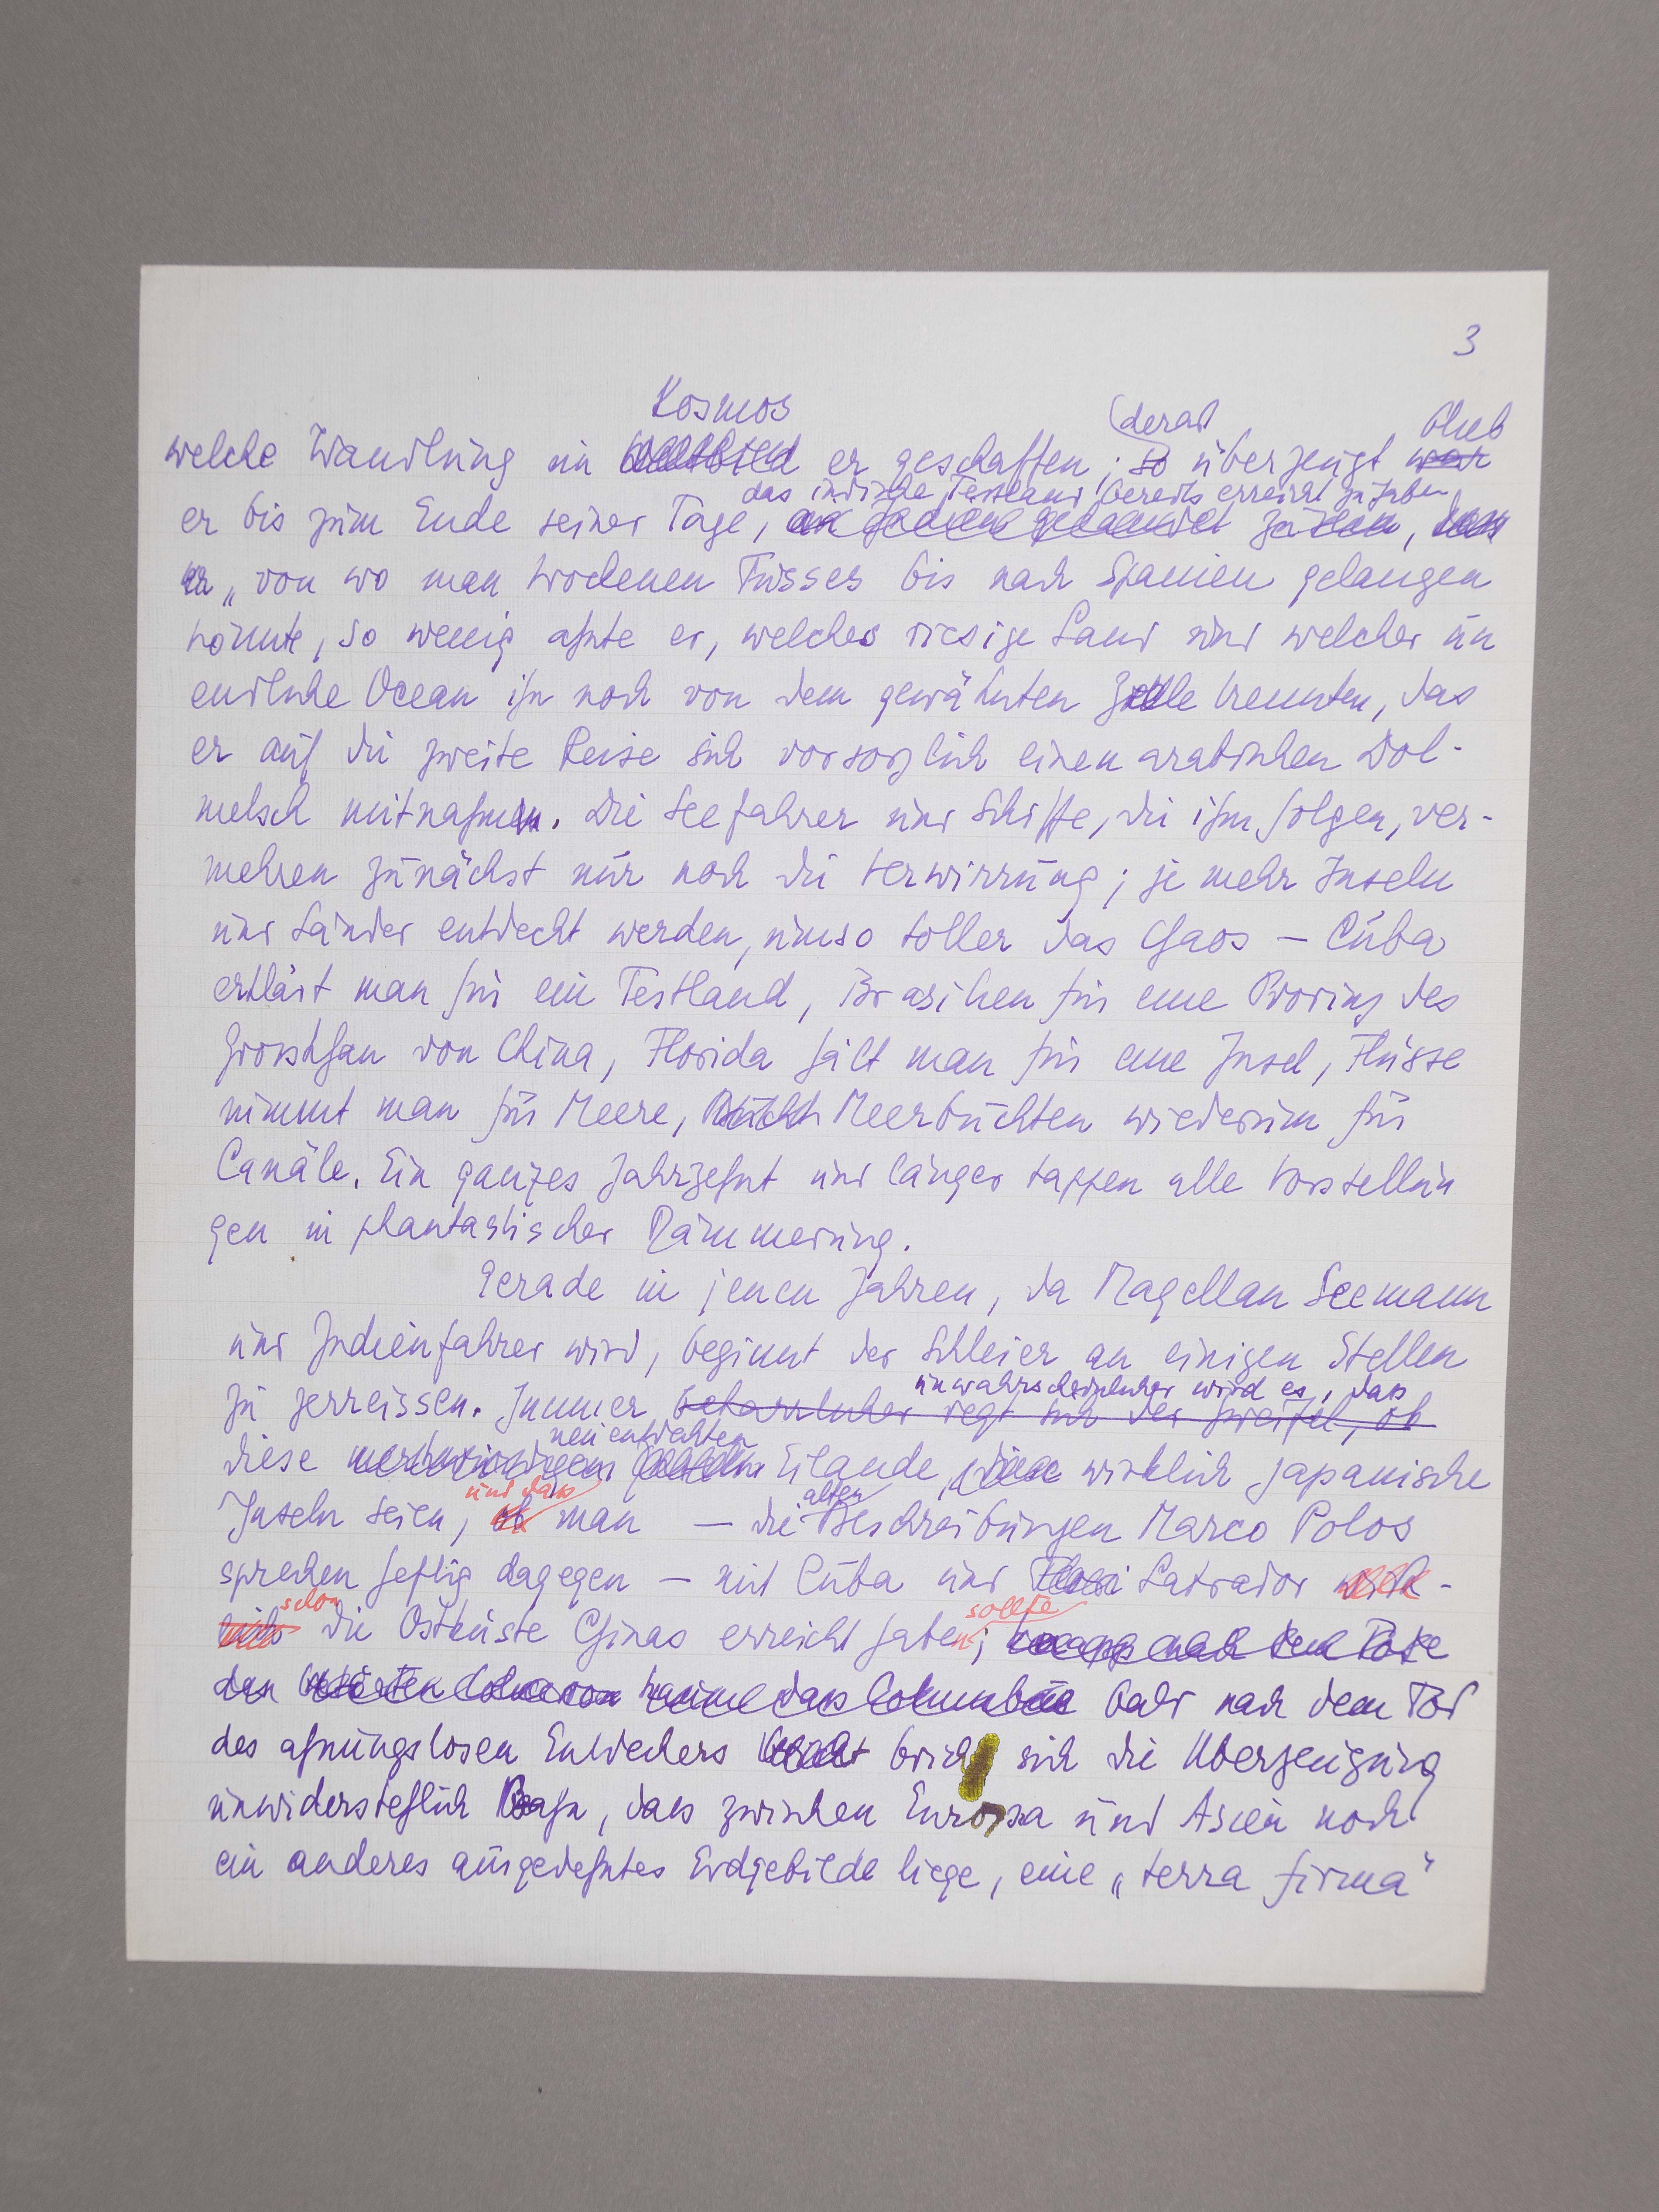 3
Kosmos derart blieb
welche Wandlung im Weltbild er geschaffen; so überzeugt war
das indische Festland bereits erreicht zu haben,
er bis zum Ende seiner Tage,
er „von wo man trockenen Fusses bis nach Spanien gelangen
könnte, so wenig ahnte er, welches riesige Land und welcher un
endliche Ocean ihn noch von dem gewähnten Ziele trennten, das
er auf die zweite Reise sich vorsorglich einen arabischen Dol-
metsch mitnahm. Die Seefahrer und Schiffe, die ihm folgen, ver-
mehren zunächst nur noch die Verwirrung; je mehr Inseln
und Länder entdeckt werden, umso toller das Chaos – Cuba
erklärt man für ein Festland, Brasilien für eine Provinz des
Grosskhan von China, Florida hält man für eine Insel, Flüsse
nimmt man für Meere, Meerbuchten wiederum für
Canäle. Ein ganzes Jahrzehnt und länger tappen alle Vorstellun
gen in phantastischer Dämmerung.
Gerade in jenen Jahren, da Magellan Seemann
und Indienfahrer wird, beginnt der Schleier an einigen Stellen
unwahrscheinlicher wird es, dass
zu zerreissen. Immer beharrlicher regt sich der Zweifel, ob
neu entdeckten
diese merkwürdigen Eilande, wirklich japanische
und dass alten
Inseln seien, ob man – die Beschreibungen Marco Polos
sprechen heftig dagegen – mit Cuba und Labrador wirk-
schon sollte
lich die Ostküste Chinas erreicht haben; knapp nach dem Tode
kaum dass Columbus bald nach dem Tod
des ahnungslosen Entdeckers bricht sich die Uberzeugung
unwiderstehlich Bahn, dass zwischen Europa und Asien noch
ein anderes ausgedehntes Erdgebilde liege, eine „terra firma"